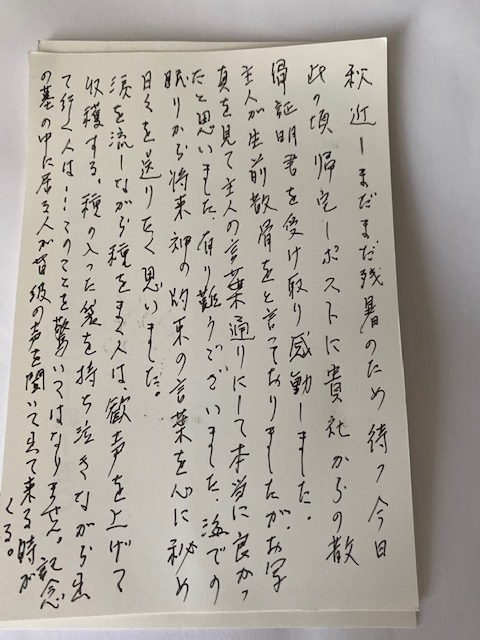 秋近しまだまだ残暑のため待つ今日
此の頃 帰宅しポストに貴社からの散
骨証明書を受け取り感動しました。
主人が生前散骨をと言っておりましたが、お写
真を見て主人の言葉通りにして本当に良かっ
たと思いました、有り難うございました、海での
眠りから将来神の約束の言葉を心に秘め
日々を送りたく思いました。
涙を流しながら種をまく人は、歓声を上げて
収穫する。種の入った袋を持ち泣きながら出
て行く人は…このことを驚いてはなりません。記念
の墓の中に居る人が皆彼の声を聞いて出て来る時が
くる。